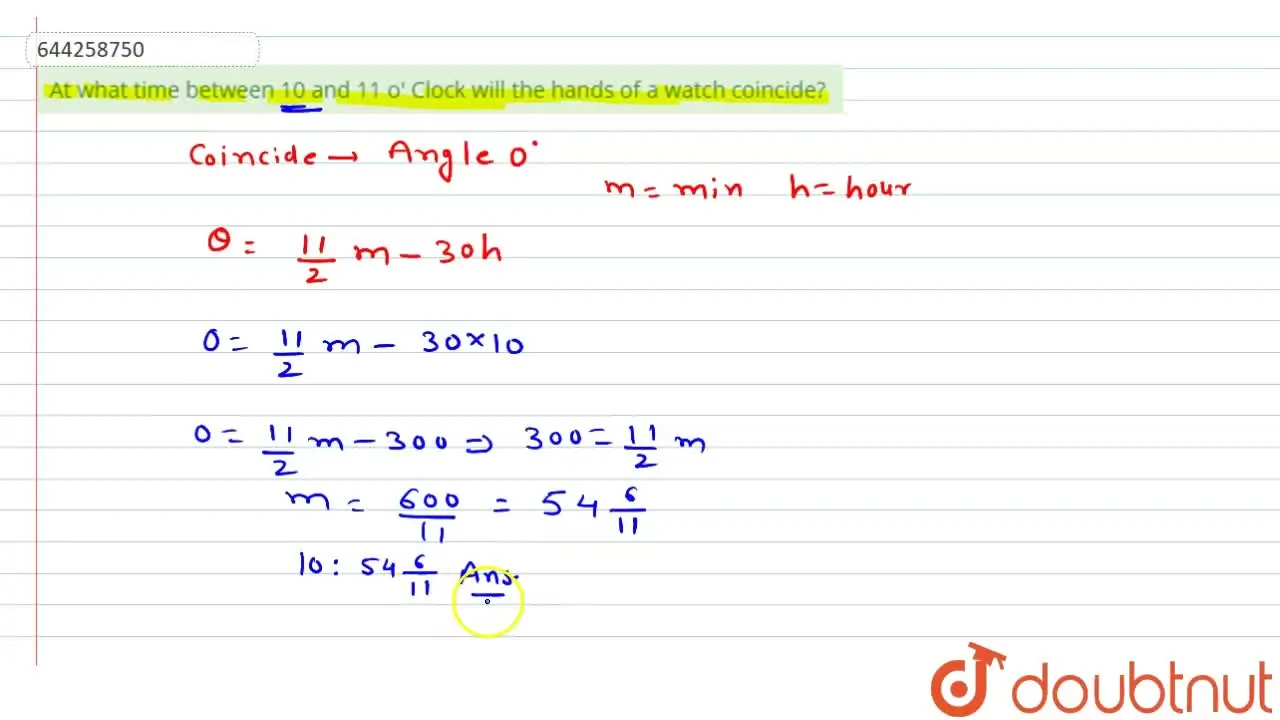 644258750
At what time between 10 and 11 o' Clock will the hands of a watch coincide?
Coincide → Angle 0°
m = min h = hour
θ = 11/2 m - 30h
0 = 11/2 m - 30×10
0 = 11/2 m - 300 ⇒ 300 = 11/2 m
m = 600/11 = 54 6/11
10: 54 6/11 Ans.
doubtnut